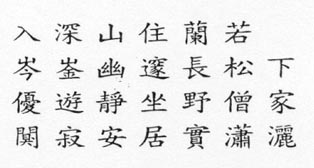 入深山住蘭若
岑崟幽邃長松下
優遊靜坐野僧家
闃寂安居實瀟灑